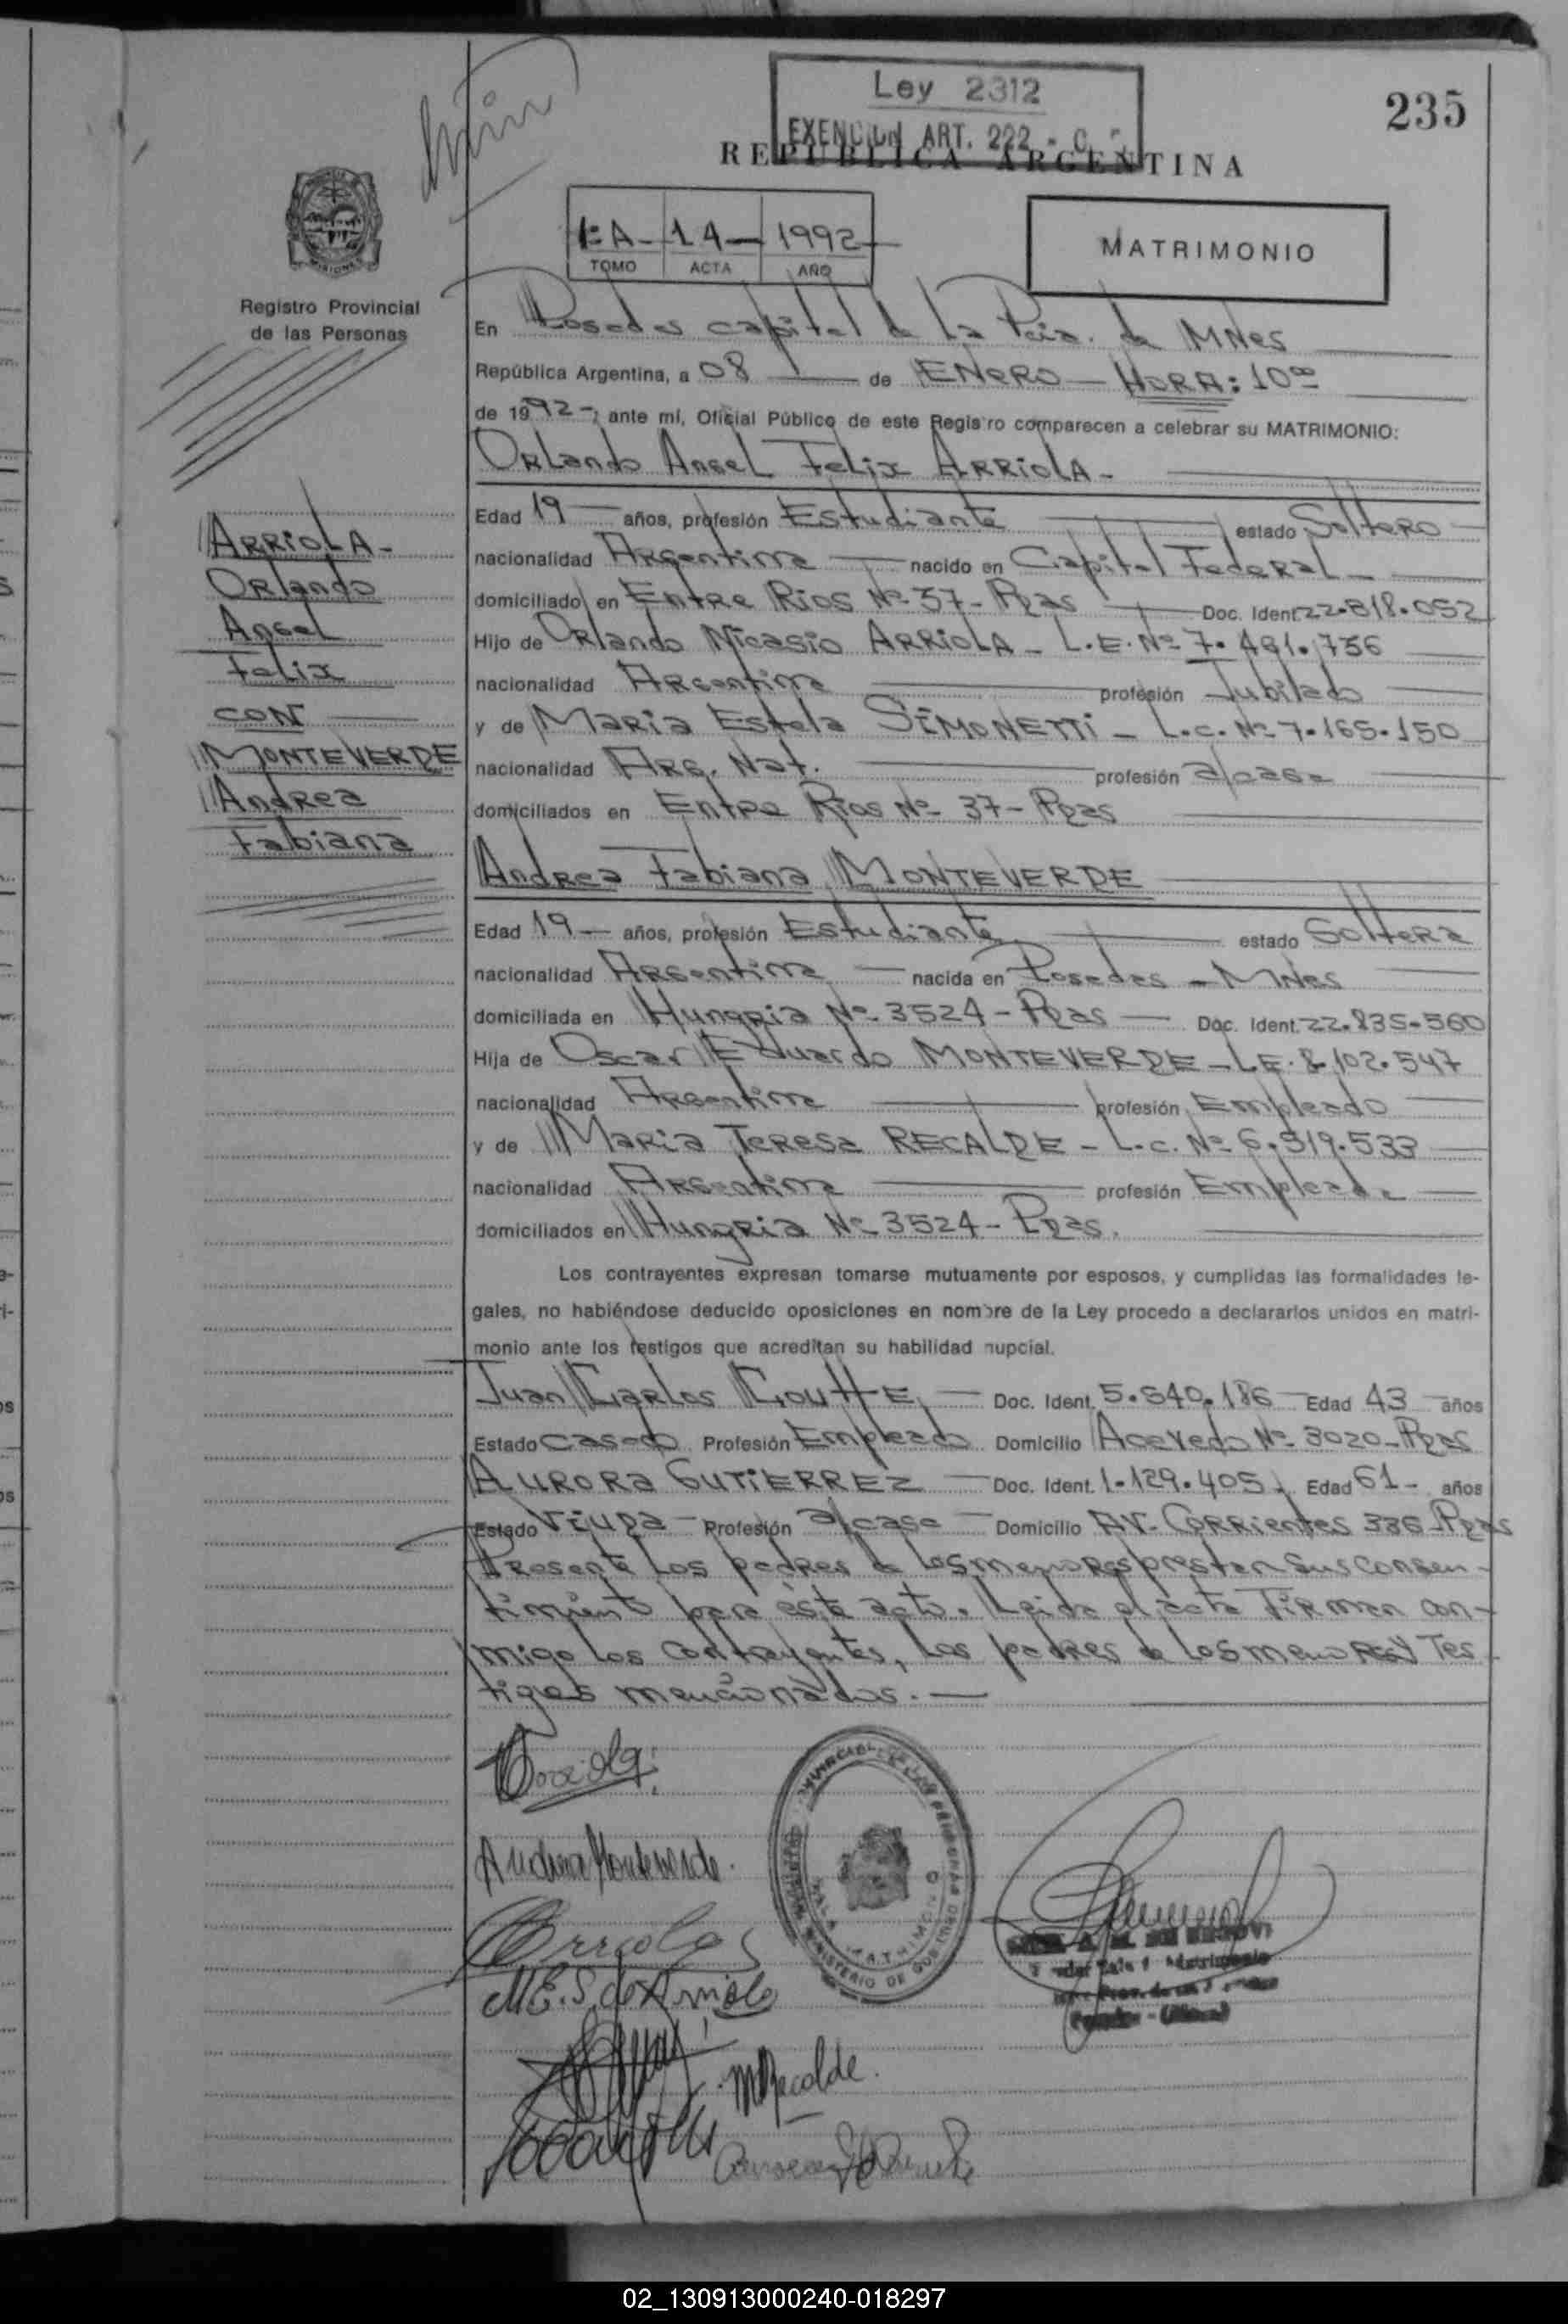 235
Ley 2312
EXENCION ART. 222 - C.
REPUBLICA ARGENTINA
1 A - 14 - 1992
TOMO ACTA AÑO
MATRIMONIO
MISIONES
Registro Provincial
de las Personas
ARRIOLA -
Orlando
Angel
Felix
CON
MONTEVERDE
Andrea
Fabiana
En Posadas capital de La Pcia. de MNes
República Argentina, a 08 de ENERO - HORA: 10⁰⁰
de 1992 -, ante mí, Oficial Público de este Registro comparecen a celebrar su MATRIMONIO:
Orlando Angel Felix ARRIOLA -
Edad 19 años, profesión Estudiante estado Soltero
nacionalidad Argentina nacido en Capital Federal -
domiciliado en Entre Rios Nº 37 - Pdas Doc. Ident. 22.818.052
Hijo de Orlando Nicasio ARRIOLA - L.E. Nº 7.491.736
nacionalidad Argentina profesión Jubilado
y de Maria Estela SIMONETTI - L.c. Nº 7.165.150
nacionalidad Arg. Nat. profesión a/casa
domiciliados en Entre Rios Nº 37 - Pdas
Andrea Fabiana MONTEVERDE
Edad 19 años, profesión Estudiante estado Soltera
nacionalidad Argentina nacida en Posadas - MNes
domiciliada en Hungria Nº 3524 - Pdas Doc. Ident. 22.835.560
Hija de Oscar Eduardo MONTEVERDE - L.E. 8.102.547
nacionalidad Argentina profesión Empleado
y de Maria Teresa RECALDE - L.c. Nº 6.519.533
nacionalidad Argentina profesión Empleada
domiciliados en Hungria Nº 3524 - Pdas.
Los contrayentes expresan tomarse mutuamente por esposos, y cumplidas las formalidades le-
gales, no habiéndose deducido oposiciones en nombre de la Ley procedo a declararlos unidos en matri-
monio ante los testigos que acreditan su habilidad nupcial.
Juan Carlos Doc. Ident. 5.540.186 Edad 43 años
Estado Casado Profesión Empleado Domicilio Acevedo Nº 3020 - Pdas
AURORA GUTIERREZ Doc. Ident. 1.129.405 Edad 61 - años
Estado Viuda - Profesión a/casa Domicilio AV. Corrientes 336 - Pdas
Presente los padres de los menores prestan sus consen-
timiento para éste acto. Leida el acta Firman con-
migo los contrayentes, los padres de los menores y Tes-
tigos mencionados. -
Arriola
Andrea Monteverde.
Arriola
M.E.S. de Arriola
MRecalde.
MINISTERIO DE GOBIERNO
02_130913000240-018297